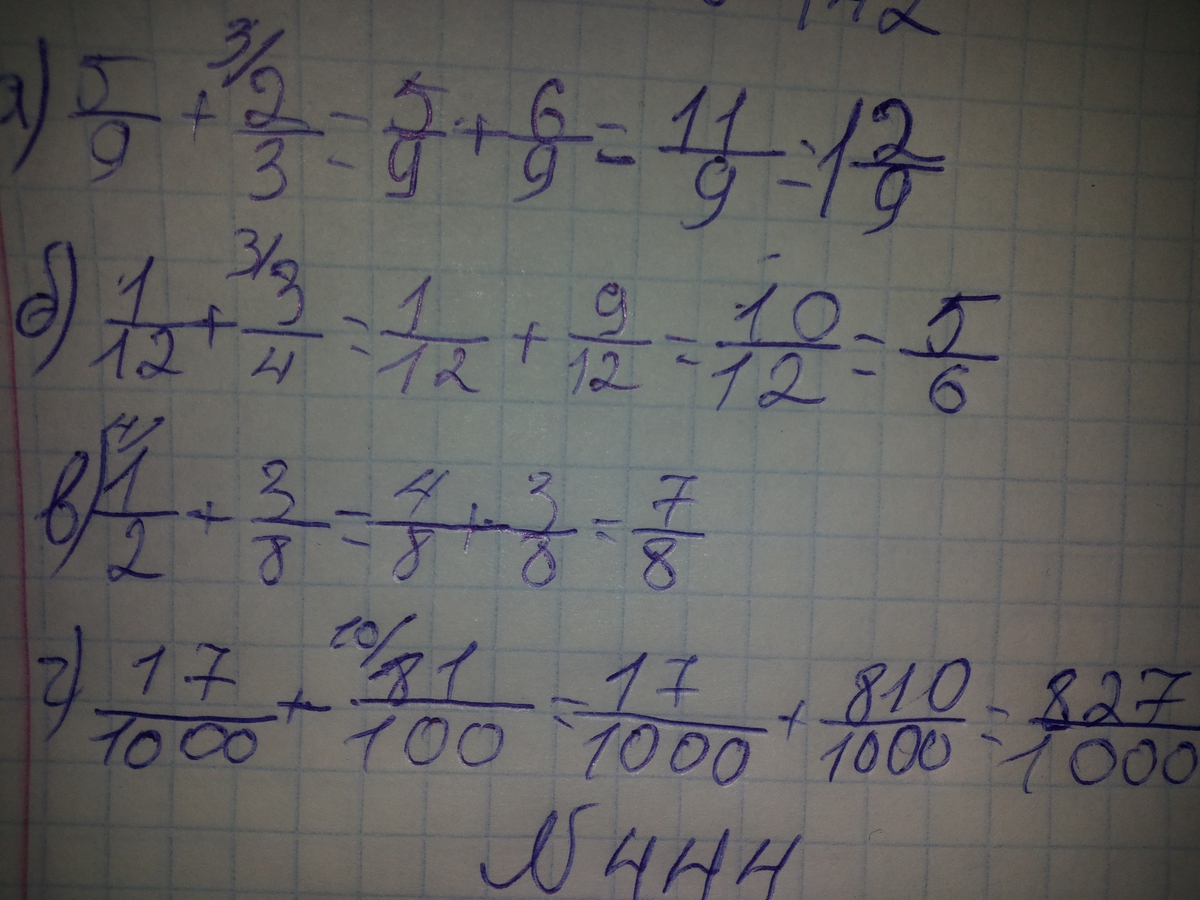 а) 5/9 + 3/ 2/3 = 5/9 + 6/9 = 11/9 = 1 2/9
б) 1/12 + 3/ 3/4 = 1/12 + 9/12 = 10/12 = 5/6
в) 4/ 1/2 + 3/8 = 4/8 + 3/8 = 7/8
г) 17/1000 + 10/ 81/100 = 17/1000 + 810/1000 = 827/1000
№444